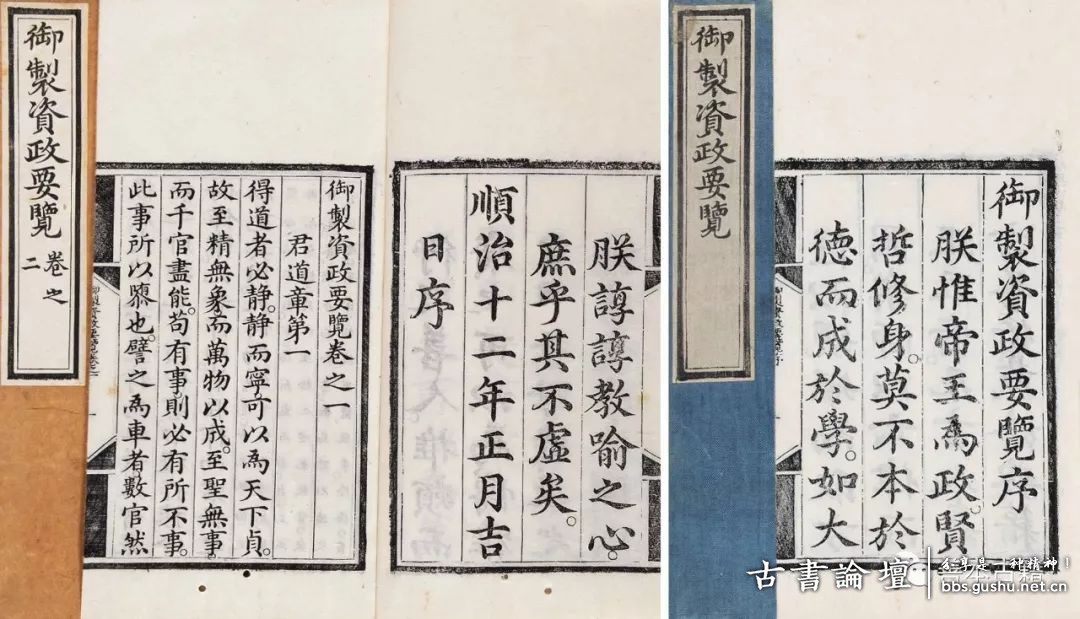 御製資政要覽序
朕惟帝王爲政。賢
哲修身。莫不本於
德而成於學。如大
御製資政要覽
朕諄諄教喻之心。
庶乎其不虛矣。
順治十二年正月吉
日序
御製資政要覽卷之一
君道章第一
得道者必静。静而寧。可以爲天下貞。
故至精無象。而萬物以成。至聖無事。
而千官盡能。苟有事。則必有所不事。
此事所以隳也。譬之爲車者數官然
御製資政要覽 卷之二
古書論壇
bbs.gushu.net.cn